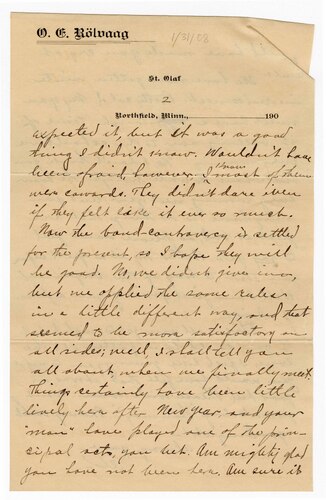 O. E. Rölvaag
1/31/08
St. Olaf
2
Northfield, Minn., 190
expected it, but it was a good
thing I didn't know. Wouldn't have
been afraid, however. I know most of them
were cowards. They didn't dare even
if they felt like it ever so much.
Now the band-controvercy is settled
for the present, so I hope they will
be good. No, we didn't give in,
but we applied the same rules
in a little different way, and that
seemed to be more satisfactory on
all sides; well, I shall tell you
all about, when we finally meet.
Things certainly have been little
lively here after New year, and your
"man" have played one of the prin-
cipal acts, you bet. Am mighty glad
you have not been here. Am sure it